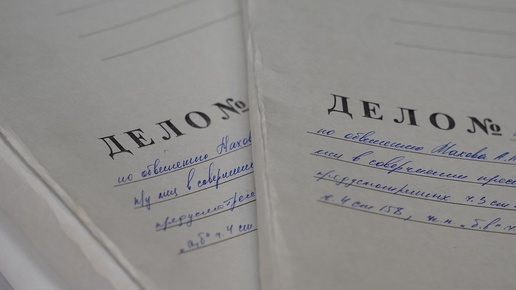 ДЕЛО №
по обвинению Махов
др лиц в совершении
предусмотрен
"а,б" ч. 4 ст
ДЕЛО №
по обвинению Махова А.
лиц в совершении прес
предусмотренных ч. 3 ст.
ч. 4 ст 158, п.п. "б,в"